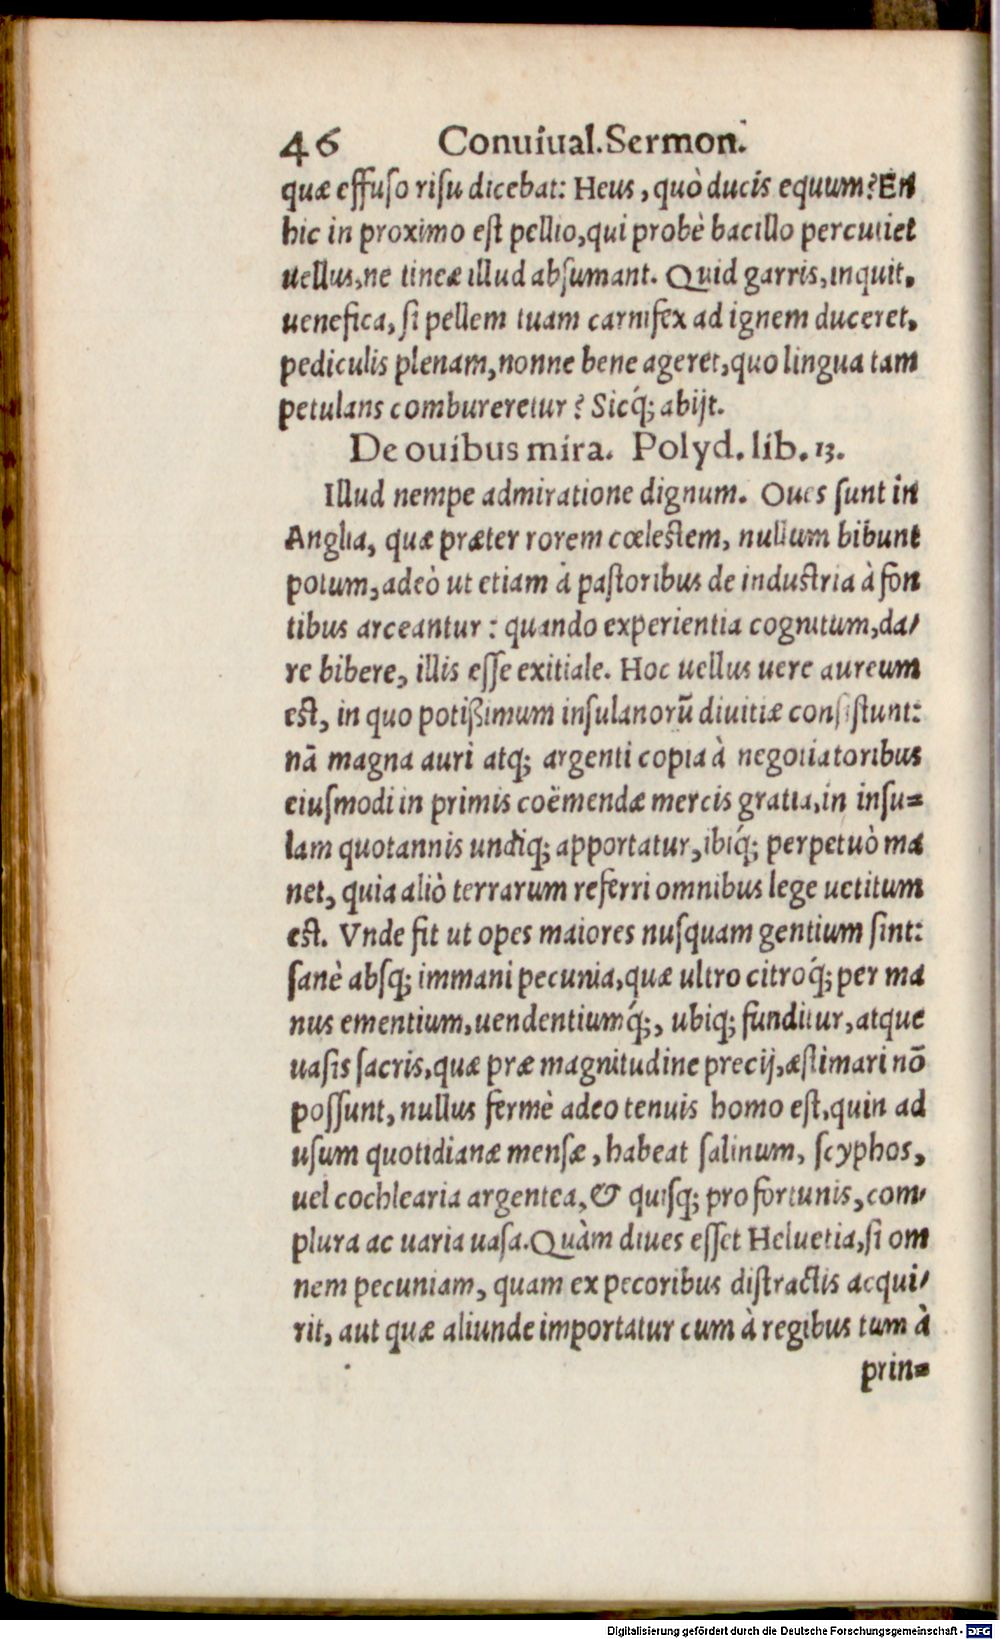 46 Conuiual.Sermon.
quæ effuso risu dicebat: Heus, quò ducis equum? En
hic in proximo est pellio, qui probè bacillo percutiet
uellus, ne tineæ illud absumant. Quid garris, inquit,
uenefica, si pellem tuam carnifex ad ignem duceret,
pediculis plenam, nonne bene ageret, quo lingua tam
petulans combureretur? Sicq́; abijt.
De ouibus mira. Polyd. lib. 13.
Illud nempe admiratione dignum. Oues sunt in
Anglia, quæ præter rorem cœlestem, nullum bibunt
potum, adeò ut etiam à pastoribus de industria à fon
tibus arceantur: quando experientia cognitum, da/
re bibere, illis esse exitiale. Hoc uellus uere aureum
est, in quo potißimum insulanorũ diuitiæ consistunt:
nã magna auri atq; argenti copia à negotiatoribus
eiusmodi in primis coëmendæ mercis gratia, in insu=
lam quotannis undiq; apportatur, ibiq́; perpetuò ma
net, quia aliò terrarum referri omnibus lege uetitum
est. Vnde fit ut opes maiores nusquam gentium sint:
sanè absq; immani pecunia, quæ ultro citroq́; per ma
nus ementium, uendentiumq́;, ubiq; funditur, atque
uasis sacris, quæ præ magnitudine precij, æstimari nõ
possunt, nullus fermè adeo tenuis homo est, quin ad
usum quotidianæ mensæ, habeat salinum, scyphos,
uel cochlearia argentea, & quisq; pro fortunis, com/
plura ac uaria uasa. Quàm diues esset Heluetia, si om
nem pecuniam, quam ex pecoribus distractis acqui/
rit, aut quæ aliunde importatur cum à regibus tum à
prin=
Digitalisierung gefördert durch die Deutsche Forschungsgemeinschaft - DFG